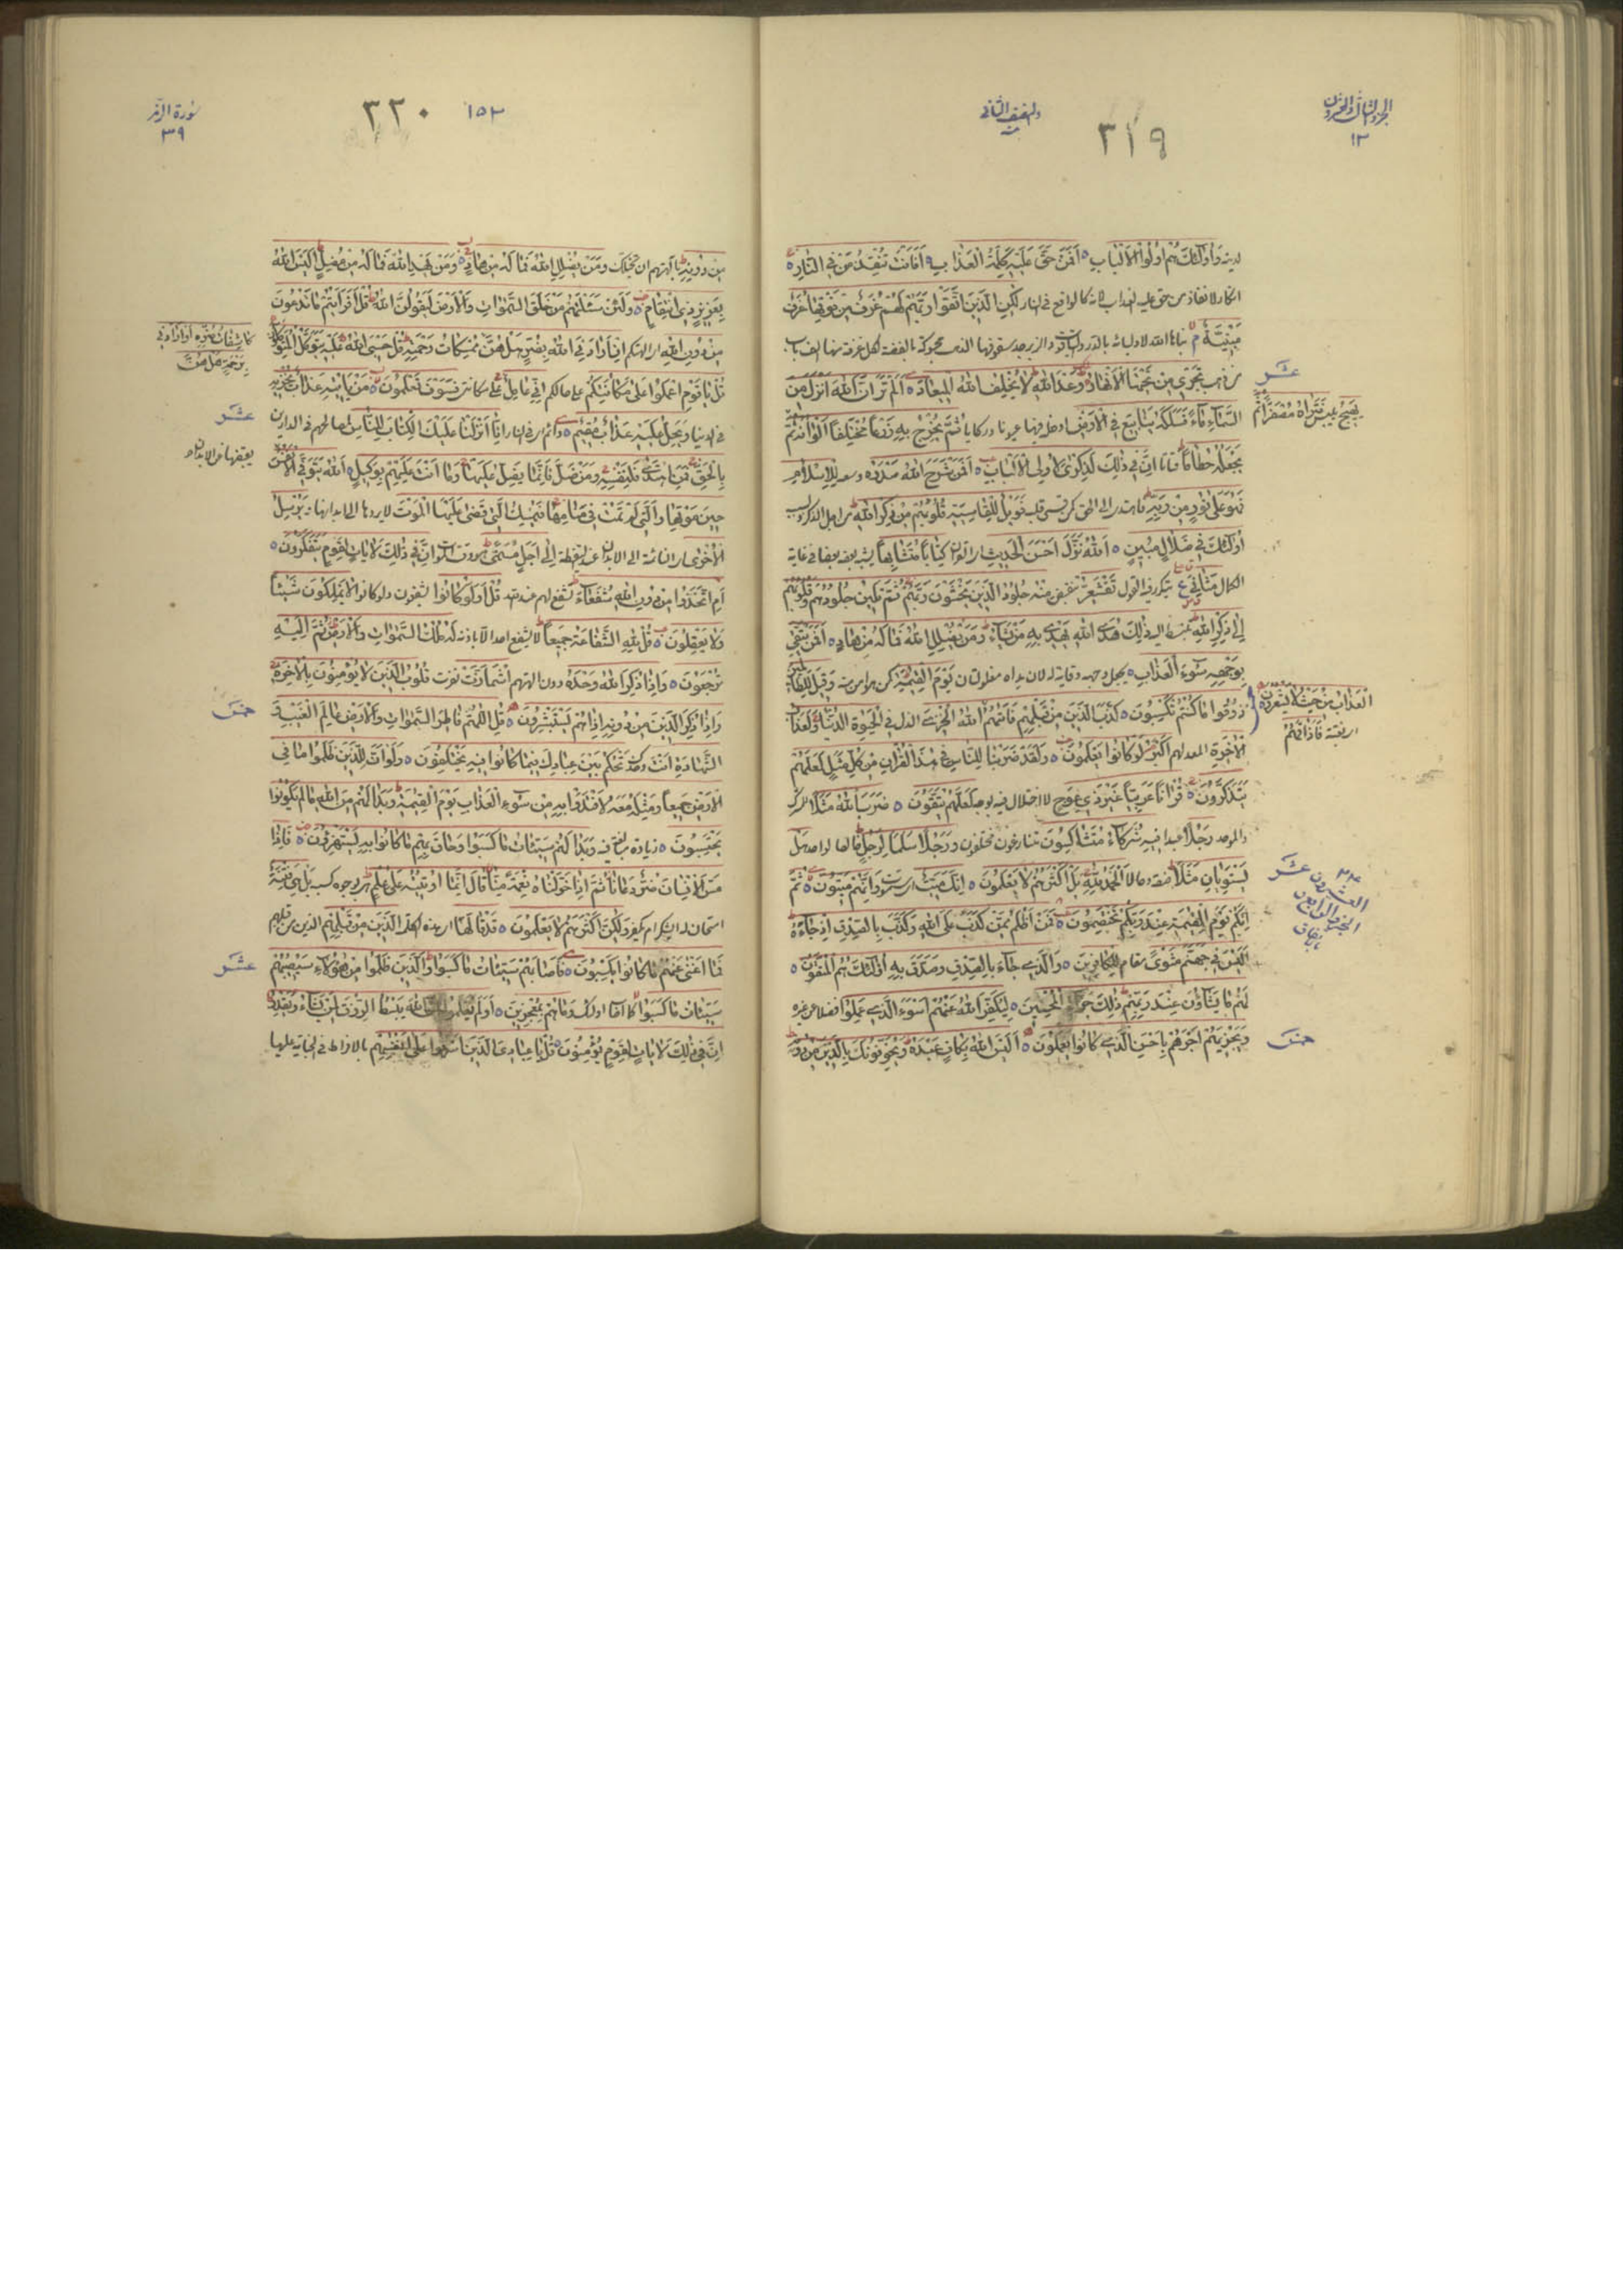 الجزء الثالث والعشرون
٢٣
والنصف الثانى
٣١٩
لدينه وَاُولٰئِكَ هُمْ اُولُوا الْاَلْبَابِ ه اَفَمَنْ حَقَّ عَلَيْهِ كَلِمَةُ الْعَذَابِ اَفَاَنْتَ تُنْقِذُ مَنْ فِي النَّارِ ه
انكار لانقاذ من حق عليه العذاب لانه كالواقع فى النار لٰكِنِ الَّذِينَ اتَّقَوْا رَبَّهُمْ لَهُمْ غُرَفٌ مِنْ فَوْقِهَا غُرَفٌ
مَبْنِيَّةٌ بناها الله لاوليائه بالدر والياقوت والزبرجد سقوفها الذهب محبوكة بالفضة لكل غرفة منها الف باب
من ذهب تَجْرِي مِنْ تَحْتِهَا الْاَنْهَارُ وَعْدَ اللهِ لَا يُخْلِفُ اللهُ الْمِيعَادَ ه اَلَمْ تَرَ اَنَّ اللهَ اَنْزَلَ مِنَ
عشر
السَّمَاءِ مَاءً فَسَلَكَهُ يَنَابِيعَ فِي الْاَرْضِ ادخله فيها عيونا وركايا ثُمَّ يُخْرِجُ بِهِ زَرْعاً مُخْتَلِفاً اَلْوَانُهُ ثُمَّ
يَهِيجُ يبس فَتَرَاهُ مُصْفَرّاً ثُمَّ
يَجْعَلُهُ حُطَاماً فتاتا اِنَّ فِي ذٰلِكَ لَذِكْرٰى لِاُولِي الْاَلْبَابِ ه اَفَمَنْ شَرَحَ اللهُ صَدْرَهُ وسعه لِلْاِسْلَامِ
فَهُوَ عَلٰى نُورٍ مِنْ رَبِّهِ فاهتدى الى الحق كمن قسى قلبه فَوَيْلٌ لِلْقَاسِيَةِ قُلُوبُهُمْ مِنْ ذِكْرِ اللهِ من اجل الذكر
اُولٰئِكَ فِي ضَلَالٍ مُبِينٍ ه اَللهُ نَزَّلَ اَحْسَنَ الْحَدِيثِ اى القران كِتَاباً مُتَشَابِهاً يشبه بعضه بعضا فى غاية
الكمال مَثَانِيَ تكرر فيه القول تَقْشَعِرُّ تنقبض مِنْهُ جُلُودُ الَّذِينَ يَخْشَوْنَ رَبَّهُمْ ثُمَّ تَلِينُ جُلُودُهُمْ وَقُلُوبُهُمْ
اِلٰى ذِكْرِ اللهِ ذٰلِكَ هُدَى اللهِ يَهْدِي بِهِ مَنْ يَشَاءُ وَمَنْ يُضْلِلِ اللهُ فَمَا لَهُ مِنْ هَادٍ ه اَفَمَنْ يَتَّقِي
بِوَجْهِهِ سُوءَ الْعَذَابِ يجعل وجهه وقاية له لان يداه مغلولتان يَوْمَ الْقِيٰمَةِ كمن هو امن منه وَقِيلَ لِلظَّالِمِينَ
ذُوقُوا مَا كُنْتُمْ تَكْسِبُونَ ه كَذَّبَ الَّذِينَ مِنْ قَبْلِهِمْ فَاَتٰهُمُ
الْعَذَابُ مِنْ حَيْثُ لَا يَشْعُرُونَ
اى بغتة فَاَذَاقَهُمُ
اللهُ الْخِزْيَ الذل فِي الْحَيٰوةِ الدُّنْيَا وَلَعَذَابُ
الْاٰخِرَةِ المعد لهم اَكْبَرُ لَوْ كَانُوا يَعْلَمُونَ ه وَلَقَدْ ضَرَبْنَا لِلنَّاسِ فِي هٰذَا الْقُرْاٰنِ مِنْ كُلِّ مَثَلٍ لَعَلَّهُمْ
يَتَذَكَّرُونَ ه قُرْاٰناً عَرَبِيّاً غَيْرَ ذِي عِوَجٍ لا اختلال فيه بوجه لَعَلَّهُمْ يَتَّقُونَ ه ضَرَبَ اللهُ مَثَلًا للمشرك
والموحد رَجُلًا عبدا فِيهِ شُرَكَاءُ مُتَشَاكِسُونَ متنازعون مختلفون وَرَجُلًا سَلَماً لِرَجُلٍ خالصا لواحد هَلْ
يَسْتَوِيَانِ مَثَلًا صفة وحالا اَلْحَمْدُ لِلهِ بَلْ اَكْثَرُهُمْ لَا يَعْلَمُونَ ه اِنَّكَ مَيِّتٌ وَاِنَّهُمْ مَيِّتُونَ ه ثُمَّ
اِنَّكُمْ يَوْمَ الْقِيٰمَةِ عِنْدَ رَبِّكُمْ تَخْتَصِمُونَ ه فَمَنْ اَظْلَمُ مِمَّنْ كَذَبَ عَلَى اللهِ وَكَذَّبَ بِالصِّدْقِ اِذْ جَاءَهُ
٢٤ عشر
الجزء الرابع والعشرون
اَلَيْسَ فِي جَهَنَّمَ مَثْوًى مقام لِلْكَافِرِينَ ه وَالَّذِي جَاءَ بِالصِّدْقِ وَصَدَّقَ بِهِ اُولٰئِكَ هُمُ الْمُتَّقُونَ ه
لَهُمْ مَا يَشَاؤُنَ عِنْدَ رَبِّهِمْ ذٰلِكَ جَزَاءُ الْمُحْسِنِينَ ه لِيُكَفِّرَ اللهُ عَنْهُمْ اَسْوَءَ الَّذِي عَمِلُوا فضلا عن غيره
وَيَجْزِيَهُمْ اَجْرَهُمْ بِاَحْسَنِ الَّذِي كَانُوا يَعْمَلُونَ ه اَلَيْسَ اللهُ بِكَافٍ عَبْدَهُ وَيُخَوِّفُونَكَ بِالَّذِينَ مِنْ دُونِهِ
خمس
١٥٣
٣٢٠
سورة الزمر
٣٩
مِنْ دُونِهِ بالهتهم ان تخبلك وَمَنْ يُضْلِلِ اللهُ فَمَا لَهُ مِنْ هَادٍ ه وَمَنْ يَهْدِ اللهُ فَمَا لَهُ مِنْ مُضِلٍّ اَلَيْسَ اللهُ
بِعَزِيزٍ ذِي انْتِقَامٍ ه وَلَئِنْ سَئَلْتَهُمْ مَنْ خَلَقَ السَّمٰوَاتِ وَالْاَرْضَ لَيَقُولُنَّ اللهُ قُلْ اَفَرَاَيْتُمْ مَا تَدْعُونَ
مِنْ دُونِ اللهِ اى الهتكم اِنْ اَرَادَنِيَ اللهُ بِضُرٍّ هَلْ هُنَّ
كَاشِفَاتُ ضُرِّهِ اَوْ اَرَادَنِي
بِرَحْمَةٍ هَلْ هُنَّ
مُمْسِكَاتُ رَحْمَتِهِ قُلْ حَسْبِيَ اللهُ عَلَيْهِ يَتَوَكَّلُ الْمُتَوَكِّلُونَ
قُلْ يَا قَوْمِ اعْمَلُوا عَلٰى مَكَانَتِكُمْ على حالكم اِنِّي عَامِلٌ على مكانتى فَسَوْفَ تَعْلَمُونَ ه مَنْ يَاْتِيهِ عَذَابٌ يُخْزِيهِ
فى الدنيا وَيَحِلُّ عَلَيْهِ عَذَابٌ مُقِيمٌ ه دائم فى النار اِنَّا اَنْزَلْنَا عَلَيْكَ الْكِتَابَ لِلنَّاسِ لمصالحهم فى الدارين
عشر
بِالْحَقِّ فَمَنِ اهْتَدٰى فَلِنَفْسِهِ وَمَنْ ضَلَّ فَاِنَّمَا يَضِلُّ عَلَيْهَا وَمَا اَنْتَ عَلَيْهِمْ بِوَكِيلٍ ه اَللهُ يَتَوَفَّى الْاَنْفُسَ
يقبضها عن الابدان
حِينَ مَوْتِهَا وَالَّتِي لَمْ تَمُتْ فِي مَنَامِهَا فَيُمْسِكُ الَّتِي قَضٰى عَلَيْهَا الْمَوْتَ لا يردها الى ابدانها وَيُرْسِلُ
الْاُخْرٰى اى النائمة الى الابدان عند اليقظة اِلٰى اَجَلٍ مُسَمًّى اِنَّ فِي ذٰلِكَ لَاٰيَاتٍ لِقَوْمٍ يَتَفَكَّرُونَ ه
اَمِ اتَّخَذُوا مِنْ دُونِ اللهِ شُفَعَاءَ تشفع لهم عند الله قُلْ اَوَلَوْ كَانُوا يشفعون ولو كانوا لَا يَمْلِكُونَ شَيْئاً
وَلَا يَعْقِلُونَ ه قُلْ لِلهِ الشَّفَاعَةُ جَمِيعاً لا يشفع احد الا باذنه لَهُ مُلْكُ السَّمٰوَاتِ وَالْاَرْضِ ثُمَّ اِلَيْهِ
تُرْجَعُونَ ه وَاِذَا ذُكِرَ اللهُ وَحْدَهُ دون الهتهم اشْمَاَزَّتْ نفرت قُلُوبُ الَّذِينَ لَا يُؤْمِنُونَ بِالْاٰخِرَةِ
وَاِذَا ذُكِرَ الَّذِينَ مِنْ دُونِهِ اِذَا هُمْ يَسْتَبْشِرُونَ ه قُلِ اللّٰهُمَّ فَاطِرَ السَّمٰوَاتِ وَالْاَرْضِ عَالِمَ الْغَيْبِ وَ
خمس
الشَّهَادَةِ اَنْتَ وحدك تَحْكُمُ بَيْنَ عِبَادِكَ فِيمَا كَانُوا فِيهِ يَخْتَلِفُونَ ه وَلَوْ اَنَّ لِلَّذِينَ ظَلَمُوا مَا فِي
الْاَرْضِ جَمِيعاً وَمِثْلَهُ مَعَهُ لَافْتَدَوْا بِهِ مِنْ سُوءِ الْعَذَابِ يَوْمَ الْقِيٰمَةِ وَبَدَا لَهُمْ مِنَ اللهِ مَا لَمْ يَكُونُوا
يَحْتَسِبُونَ ه زيادة مبالغة فيه وَبَدَا لَهُمْ سَيِّئَاتُ مَا كَسَبُوا وَحَاقَ بِهِمْ مَا كَانُوا بِهِ يَسْتَهْزِؤُنَ ه فَاِذَا
مَسَّ الْاِنْسَانَ ضُرٌّ دَعَانَا ثُمَّ اِذَا خَوَّلْنَاهُ نِعْمَةً مِنَّا قَالَ اِنَّمَا اُوتِيتُهُ عَلٰى عِلْمٍ بوجوه كسبه بَلْ هِيَ فِتْنَةٌ
امتحان له ايشكر ام يكفر وَلٰكِنَّ اَكْثَرَهُمْ لَا يَعْلَمُونَ ه قَدْ قَالَهَا اى هذه الكلمة الَّذِينَ مِنْ قَبْلِهِمْ
فَمَا اَغْنٰى عَنْهُمْ مَا كَانُوا يَكْسِبُونَ ه فَاَصَابَهُمْ سَيِّئَاتُ مَا كَسَبُوا وَالَّذِينَ ظَلَمُوا مِنْ هٰؤُلَاءِ سَيُصِيبُهُمْ
عشر
سَيِّئَاتُ مَا كَسَبُوا كما اصاب اولئك وَمَا هُمْ بِمُعْجِزِينَ ه اَوَلَمْ يَعْلَمُوا اَنَّ اللهَ يَبْسُطُ الرِّزْقَ لِمَنْ يَشَاءُ وَيَقْدِرُ
اِنَّ فِي ذٰلِكَ لَاٰيَاتٍ لِقَوْمٍ يُؤْمِنُونَ ه قُلْ يَا عِبَادِيَ الَّذِينَ اَسْرَفُوا عَلٰى اَنْفُسِهِمْ بالافراط فى الجناية عليها